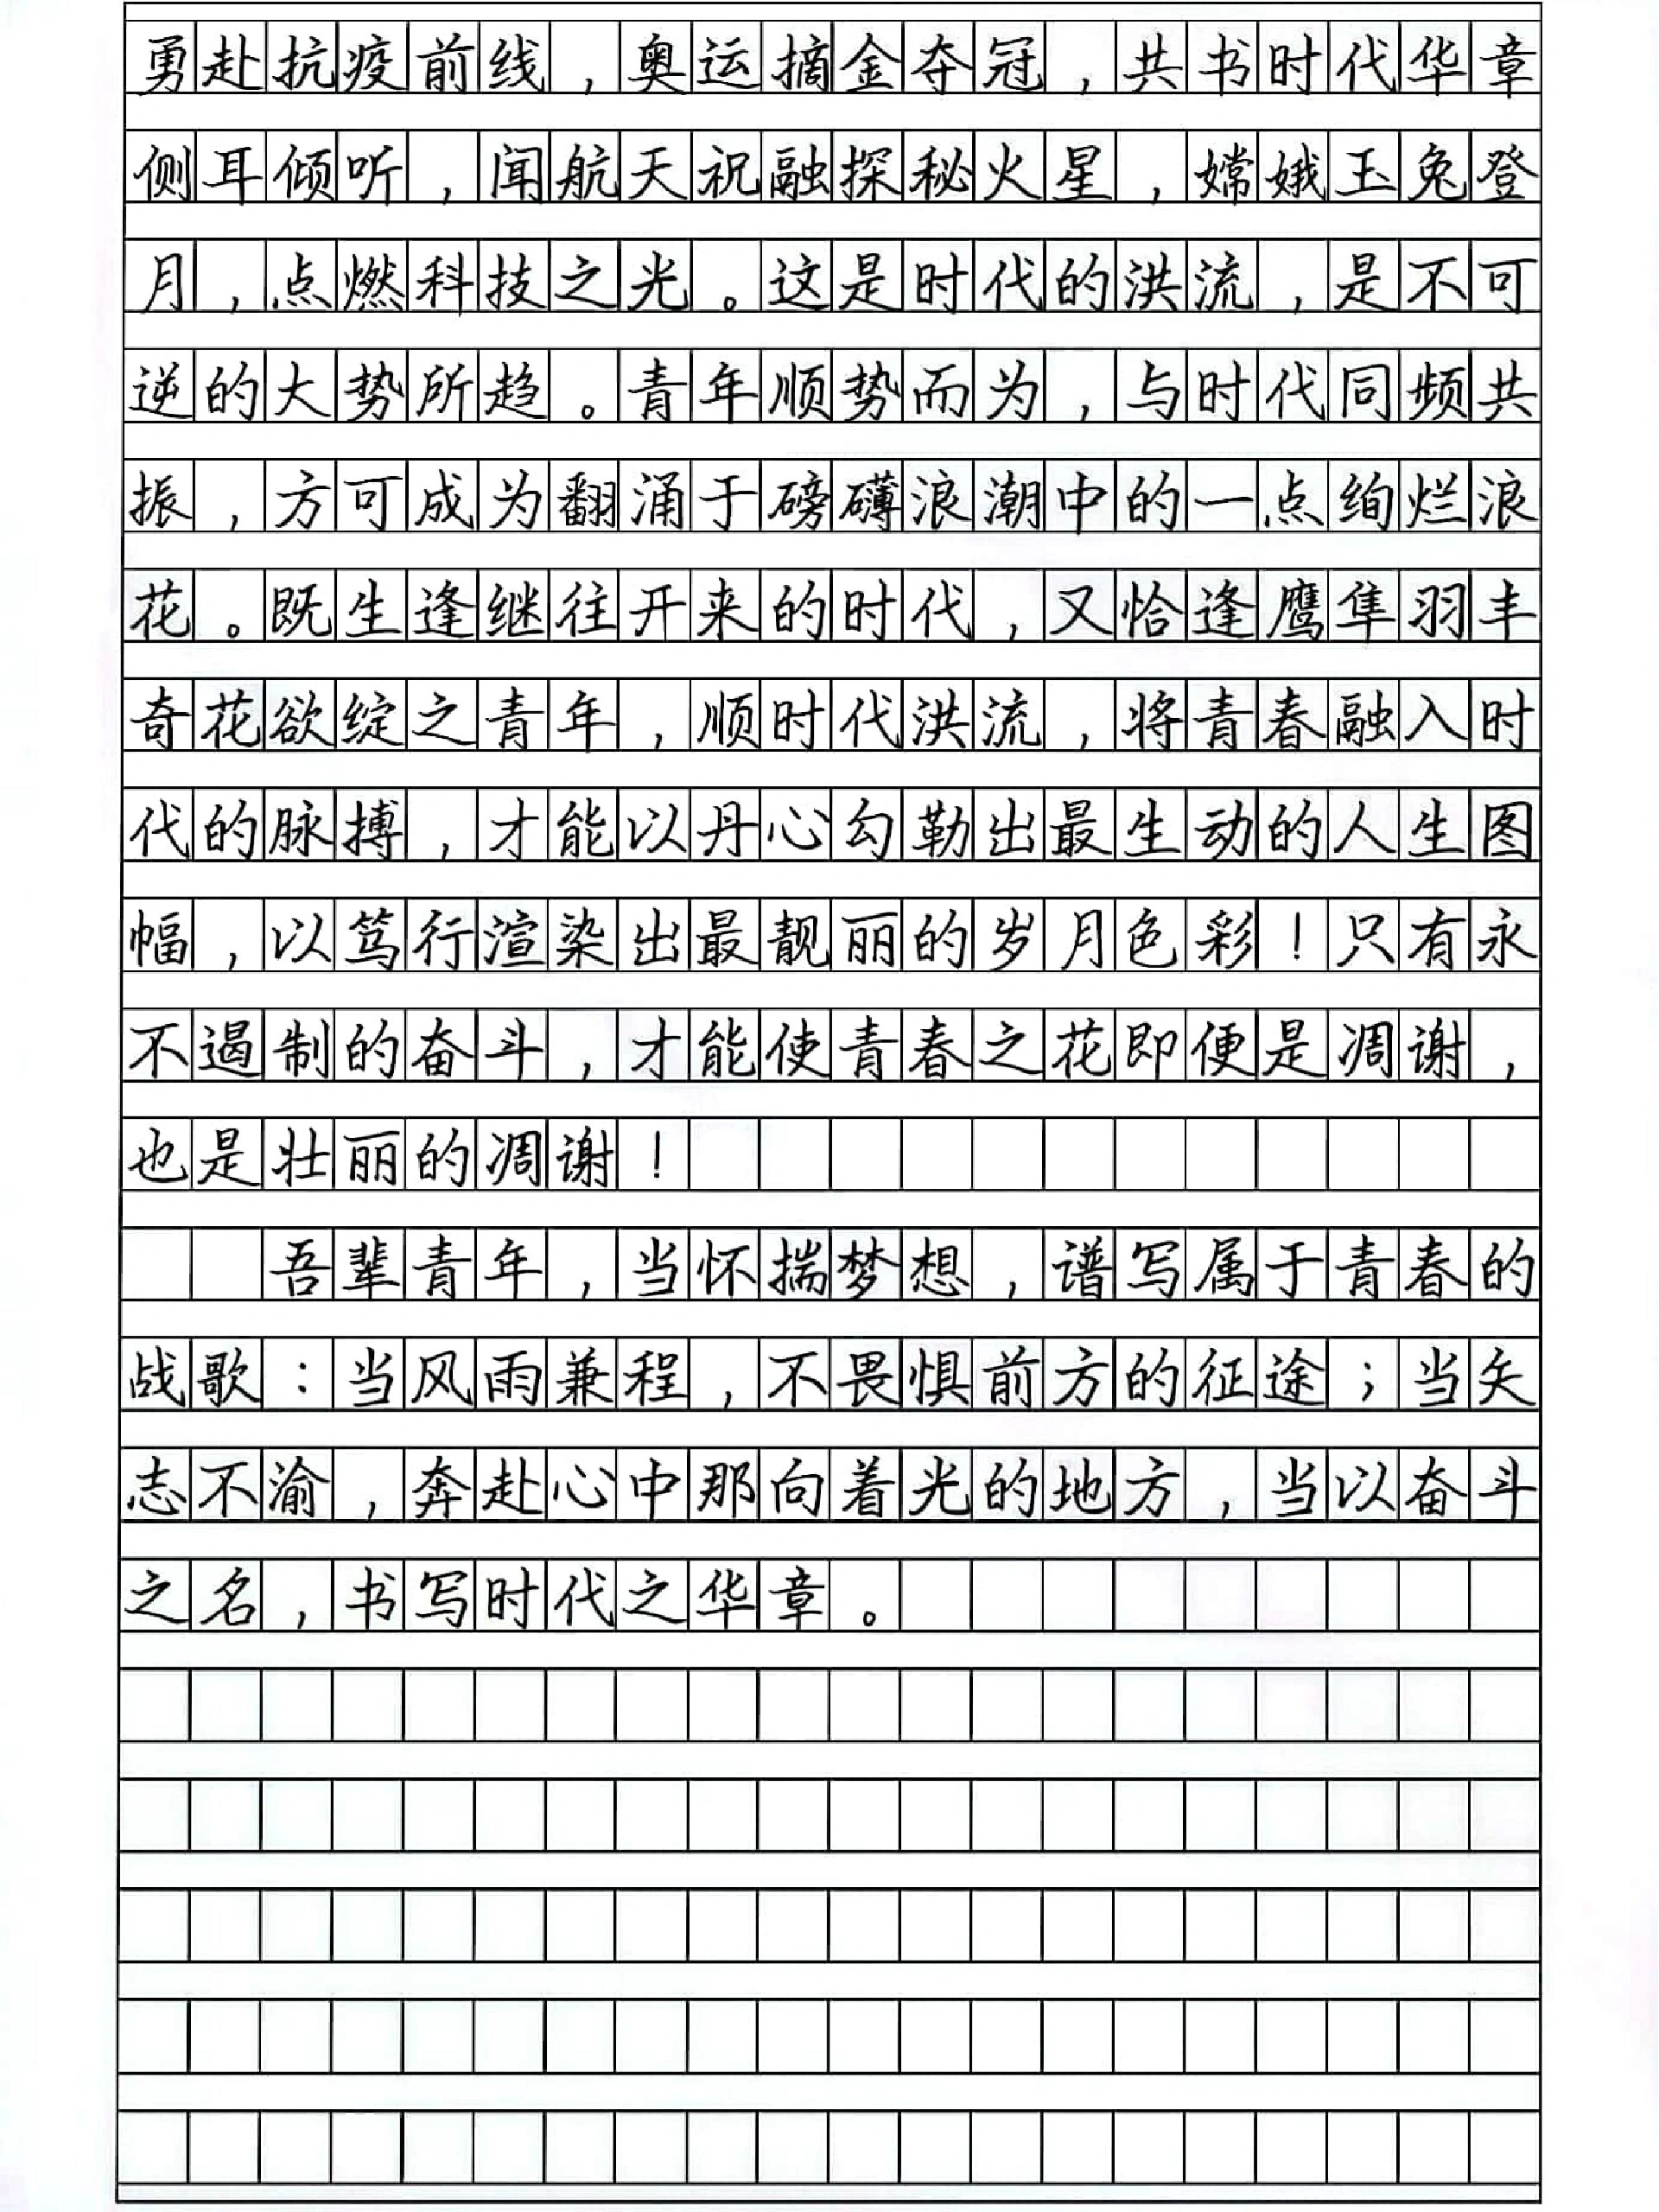 勇赴抗疫前线，奥运摘金夺冠，共书时代华章
侧耳倾听，闻航天祝融探秘火星，嫦娥玉兔登
月，点燃科技之光。这是时代的洪流，是不可
逆的大势所趋。青年顺势而为，与时代同频共
振，方可成为翻涌于磅礴浪潮中的一点绚烂浪
花。既生逢继往开来的时代，又恰逢鹰隼羽丰
奇花欲绽之青年，顺时代洪流，将青春融入时
代的脉搏，才能以丹心勾勒出最生动的人生图
幅，以笃行渲染出最靓丽的岁月色彩！只有永
不遏制的奋斗，才能使青春之花即便是凋谢，
也是壮丽的凋谢！
吾辈青年，当怀揣梦想，谱写属于青春的
战歌：当风雨兼程，不畏惧前方的征途；当矢
志不渝，奔赴心中那向着光的地方，当以奋斗
之名，书写时代之华章。